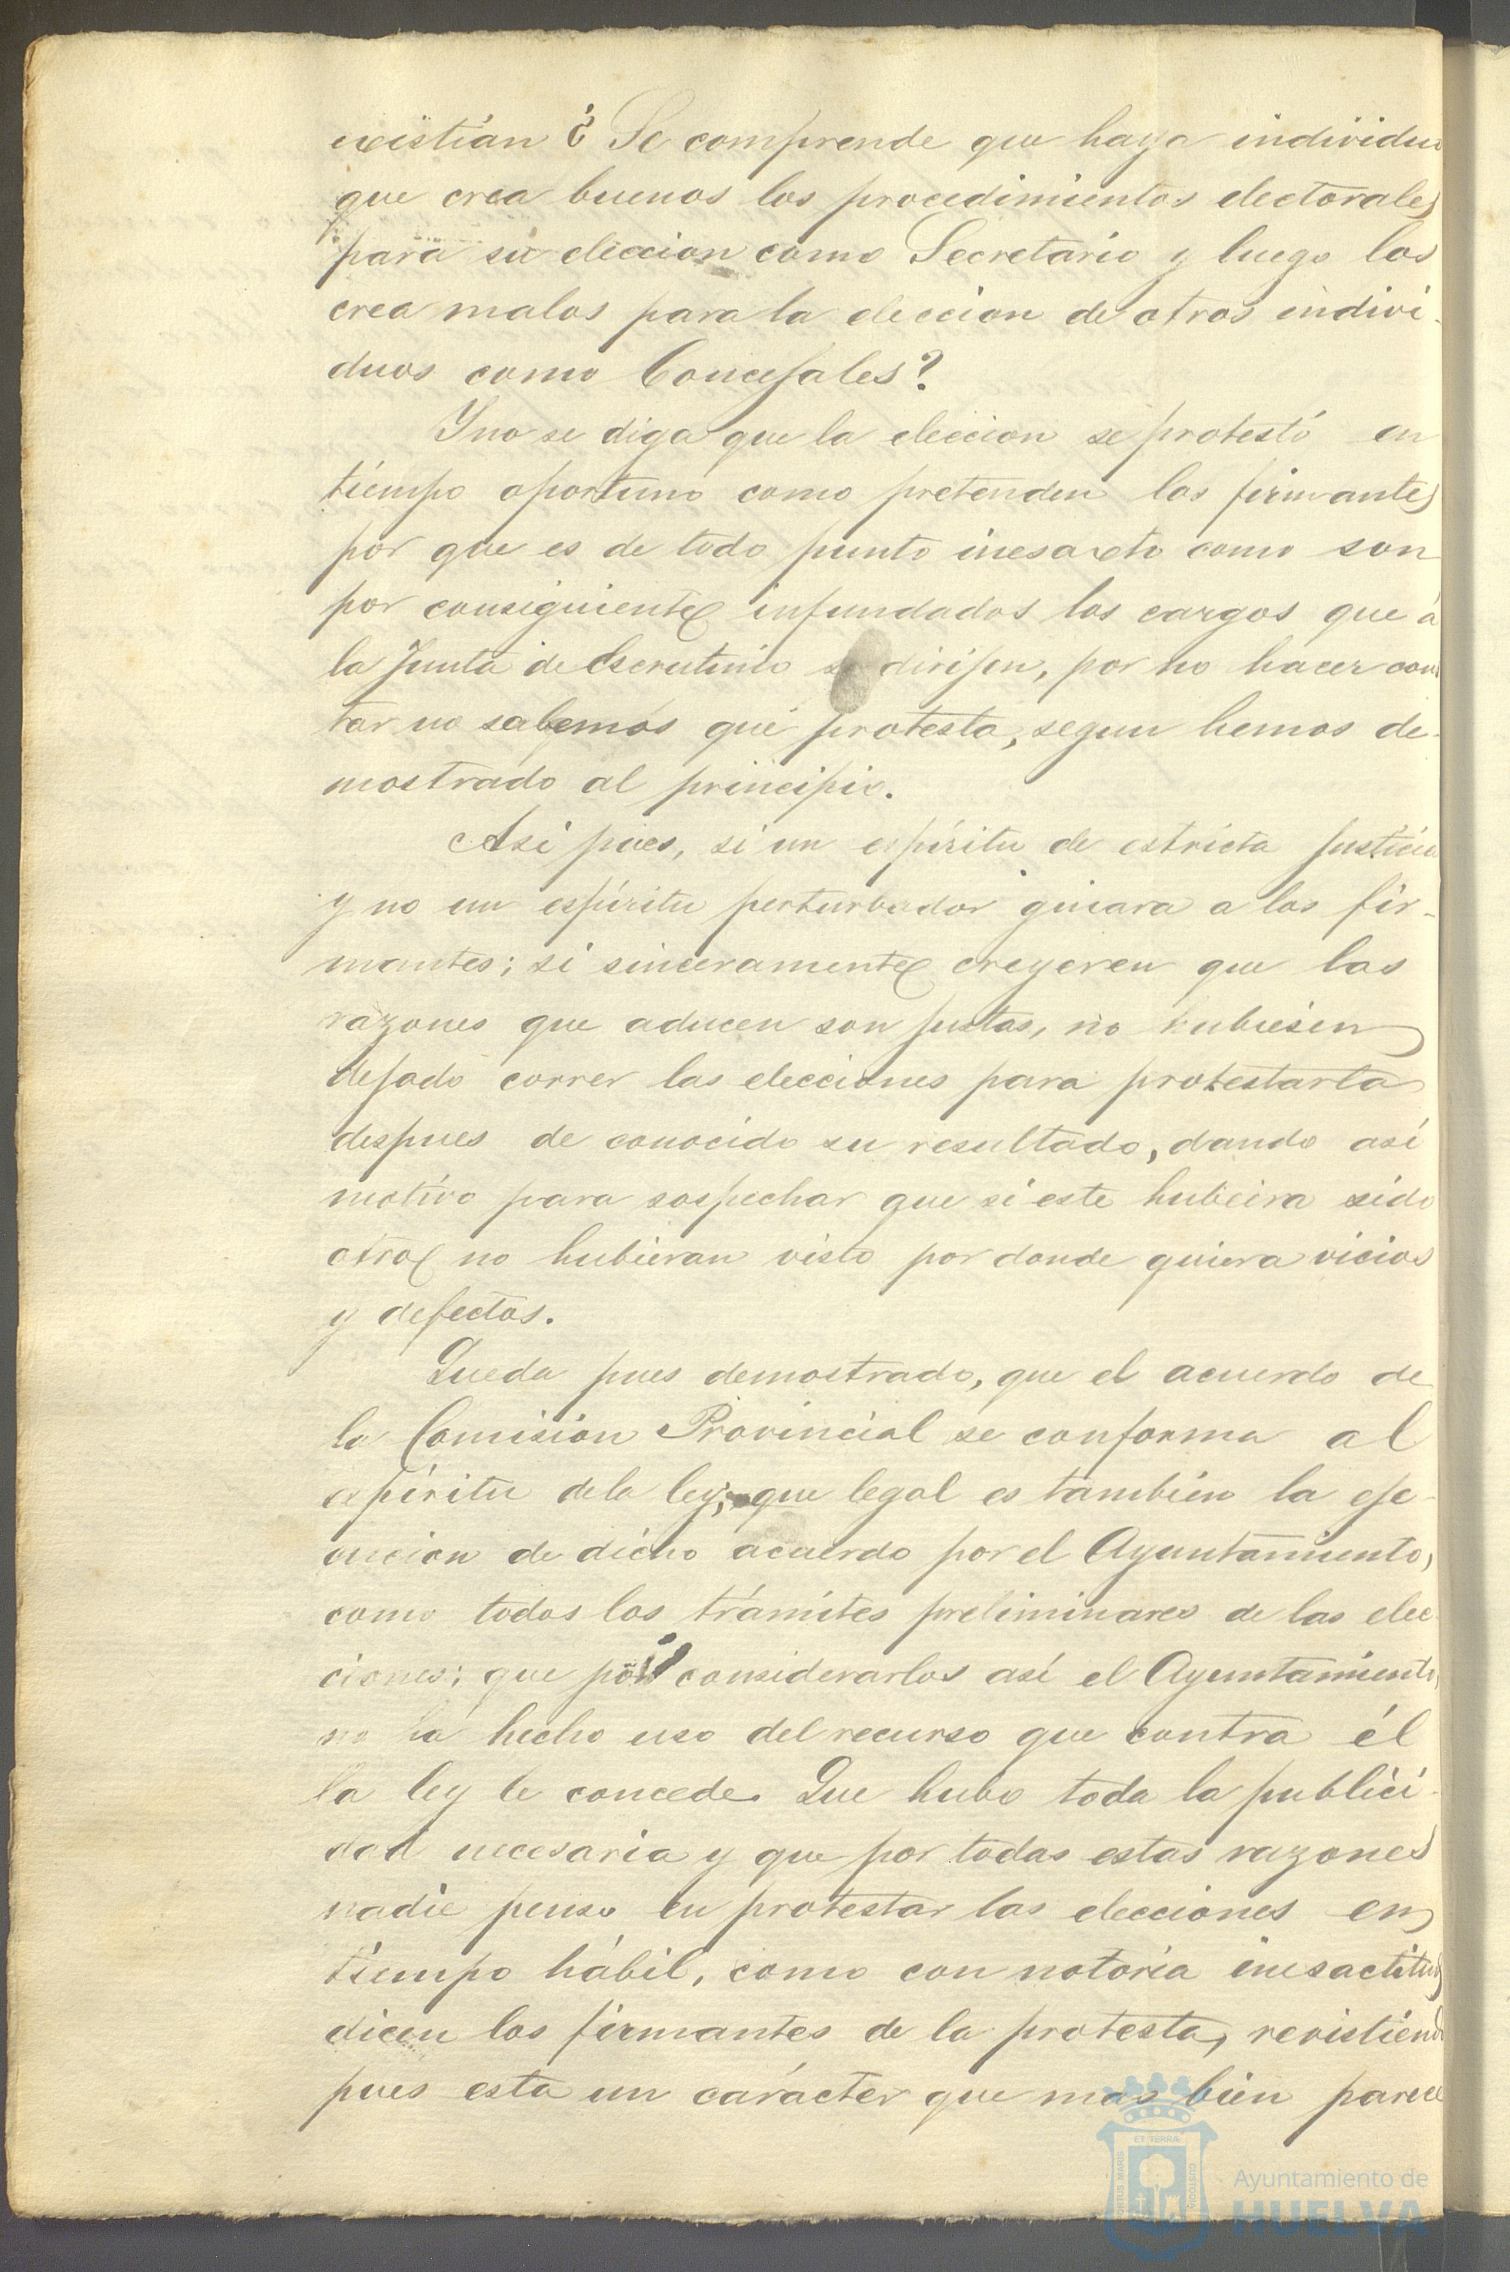 existian ¿ Se comprende que haya individuo
que crea buenos los procedimientos electorales
para su eleccion como Secretario y luego los
crea malos para la eleccion de otros indivi-
duos como Concejales?
Y no se diga que la eleccion se protestó en
tiempo oportuno como pretenden los firmantes
por que es de todo punto inesacto como son
por consiguiente infundados los cargos que á
la Junta de Escrutinio se dirijen, por no hacer cons
tar no sabemos qué protesta, segun hemos de-
mostrado al principio.
Asi pues, si un espíritu de estricta justicia
y no un espíritu perturbador guiara a los fir-
mantes; si sinceramente creyeren que las
razones que aducen son justas, no hubiesen
dejado correr las elecciones para protestarla
despues de conocido su resultado, dando así
motivo para sospechar que si este hubiera sido
otro no hubieran visto por donde quiera vicios
y defectos.
Queda pues demostrado, que el acuerdo de
la Comision Provincial se conforma al
espíritu de la ley; que legal es tambien la eje-
cucion de dicho acuerdo por el Ayuntamiento,
como todos los trámites preliminares de las elec
ciones; que por considerarlos así el Ayuntamiento,
no há hecho uso del recurso que contra él
la ley le concede. Que hubo toda la publici-
dad necesaria y que por todas estas razones
nadie penso en protestar las elecciones en
tiempo hábil, como con notoria inesactitud
dicen los firmantes de la protesta, revistiendo
pues esta un carácter que mas bien parece
Ayuntamiento de
HUELVA
ET TERRA
PORTUS MARIS
CUSTODIA